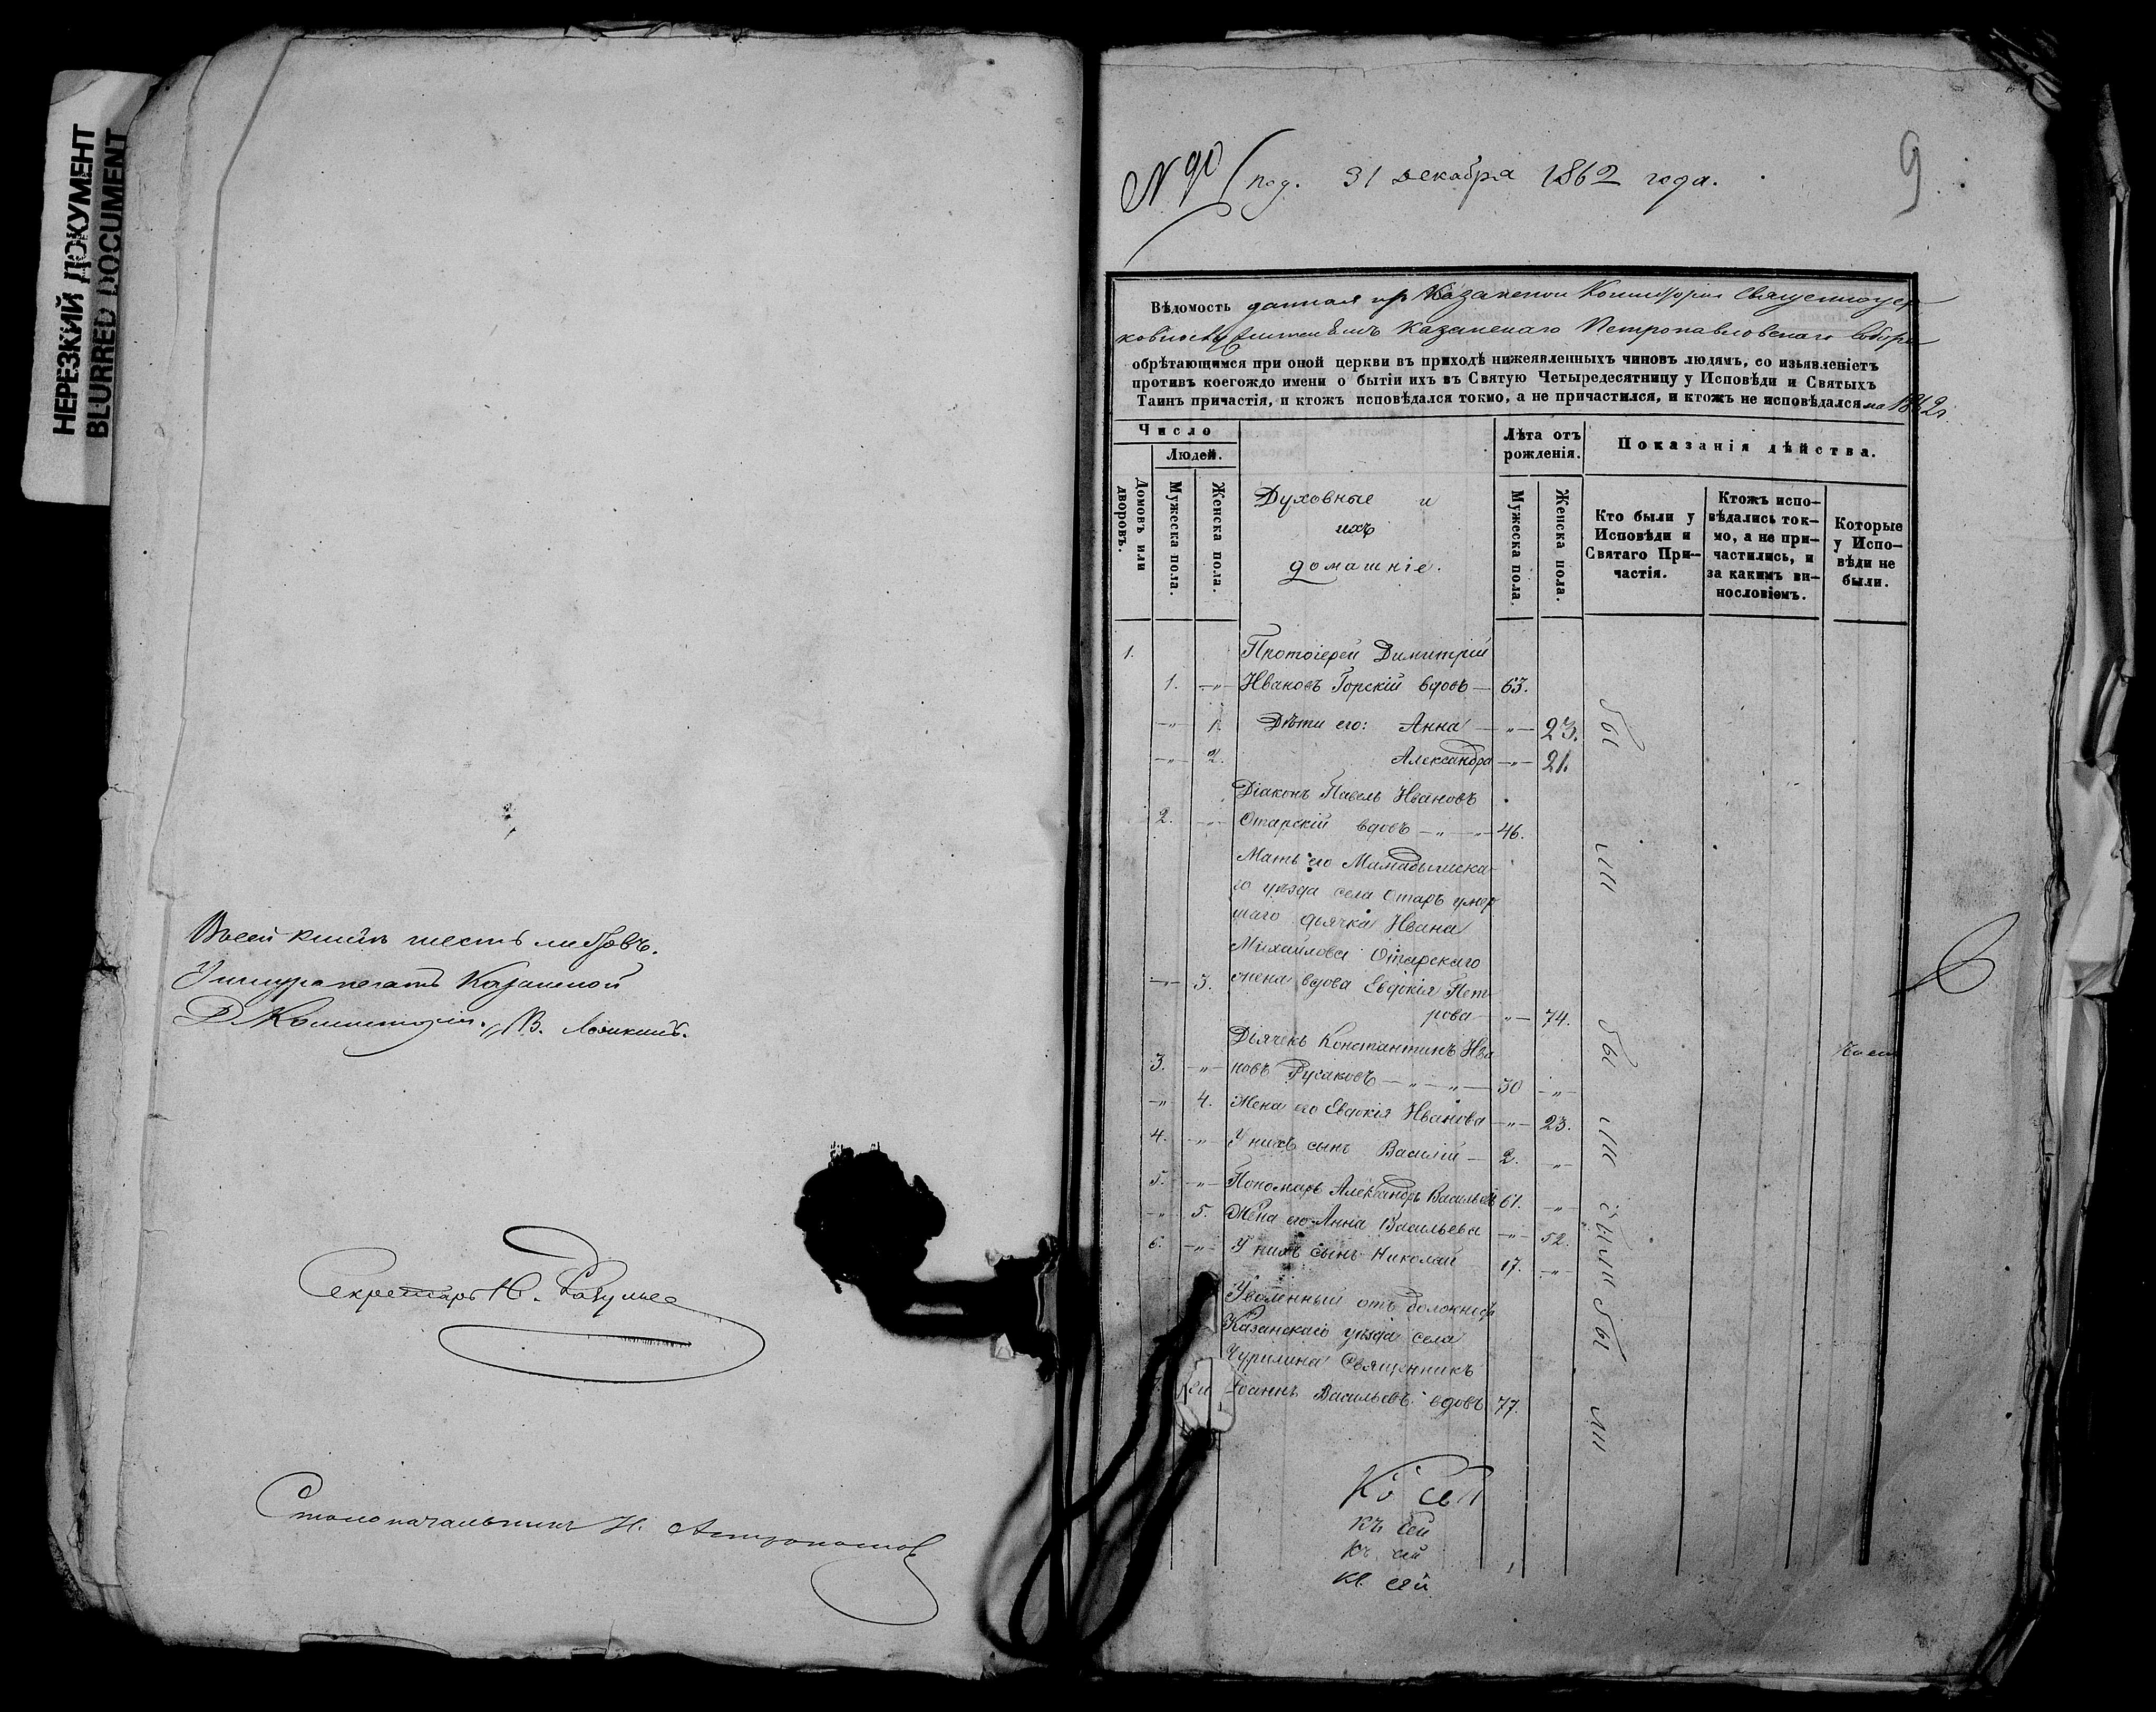 НЕРЕЗКИЙ ДОКУМЕНТ
BLURRED DOCUMENT
Всей книги шесть листовъ.
Казанской
Д. Консисторіи. В.
Секретарь Н.
Столоначальникъ Н.
N 90 под. 31 декабря 1862 года.
9
Вѣдомость данная изъ Казанской Консисторіи Священноцер
ковнослужителямъ Казанскаго Петропавловскаго Собора
обрѣтающимся при оной церкви въ приходѣ нижеявленныхъ чиновъ людямъ, со изъявленіетъ
противъ коегождо имени о бытіи ихъ въ Святую Четыредесятницу у Исповѣди и Святыхъ
Таинъ причастія, и ктожъ исповѣдался токмо, а не причастился, и ктожъ не исповѣдался на 1862 г.
Число
Людей.
Домовъ или дворовъ.
Мужеска пола.
Женска пола.
Духовные и
ихъ
домашніе.
Лѣта отъ
рожденія.
Мужеска пола.
Женска пола.
Показанія дѣйства.
Кто были у
Исповѣди и
Святаго При-
частія.
Ктожъ испо-
вѣдались ток-
мо, а не при-
частились, и
за какимъ ви-
нословіемъ.
Которые
у Испо-
вѣди не
были.
1. Протоіерей Димитрій
1. —„— Ивановъ Горскій вдовъ — 63.
—„— 1. Дѣти его: Анна —„— 23.
—„— 2. Александра —„— 21.
Діаконъ Павелъ Ивановъ
2. —„— Отарскій вдовъ —„—„— 46.
Мать его Мамадышска-
го уѣзда села Отаръ умер
шаго дьячка Ивана
Михайлова Отарскаго
—„— 3. жена вдова Евдокія Пет-
рова —„— 74.
Діячекъ Константинъ Ива
3. —„— новъ Русаковъ —„—„— 30 —„—
—„— 4. Жена его Евдокія Иванова —„— 23.
4. —„— У нихъ сынъ Василій — 2. —„—
5. —„— Пономарь Александръ Васильевъ 61. —„—
—„— 5. Жена его Анна Васильева —„— 52.
6. —„— У нихъ сынъ Николай 17. —„—
Уволенный отъ должности
Казанскаго уѣзда села
Чурилина Священникъ
Іоаннъ Васильевъ вдовъ 77.
бы
ли
бы
ли
бы
ли
Къ сей
къ сей
къ сей